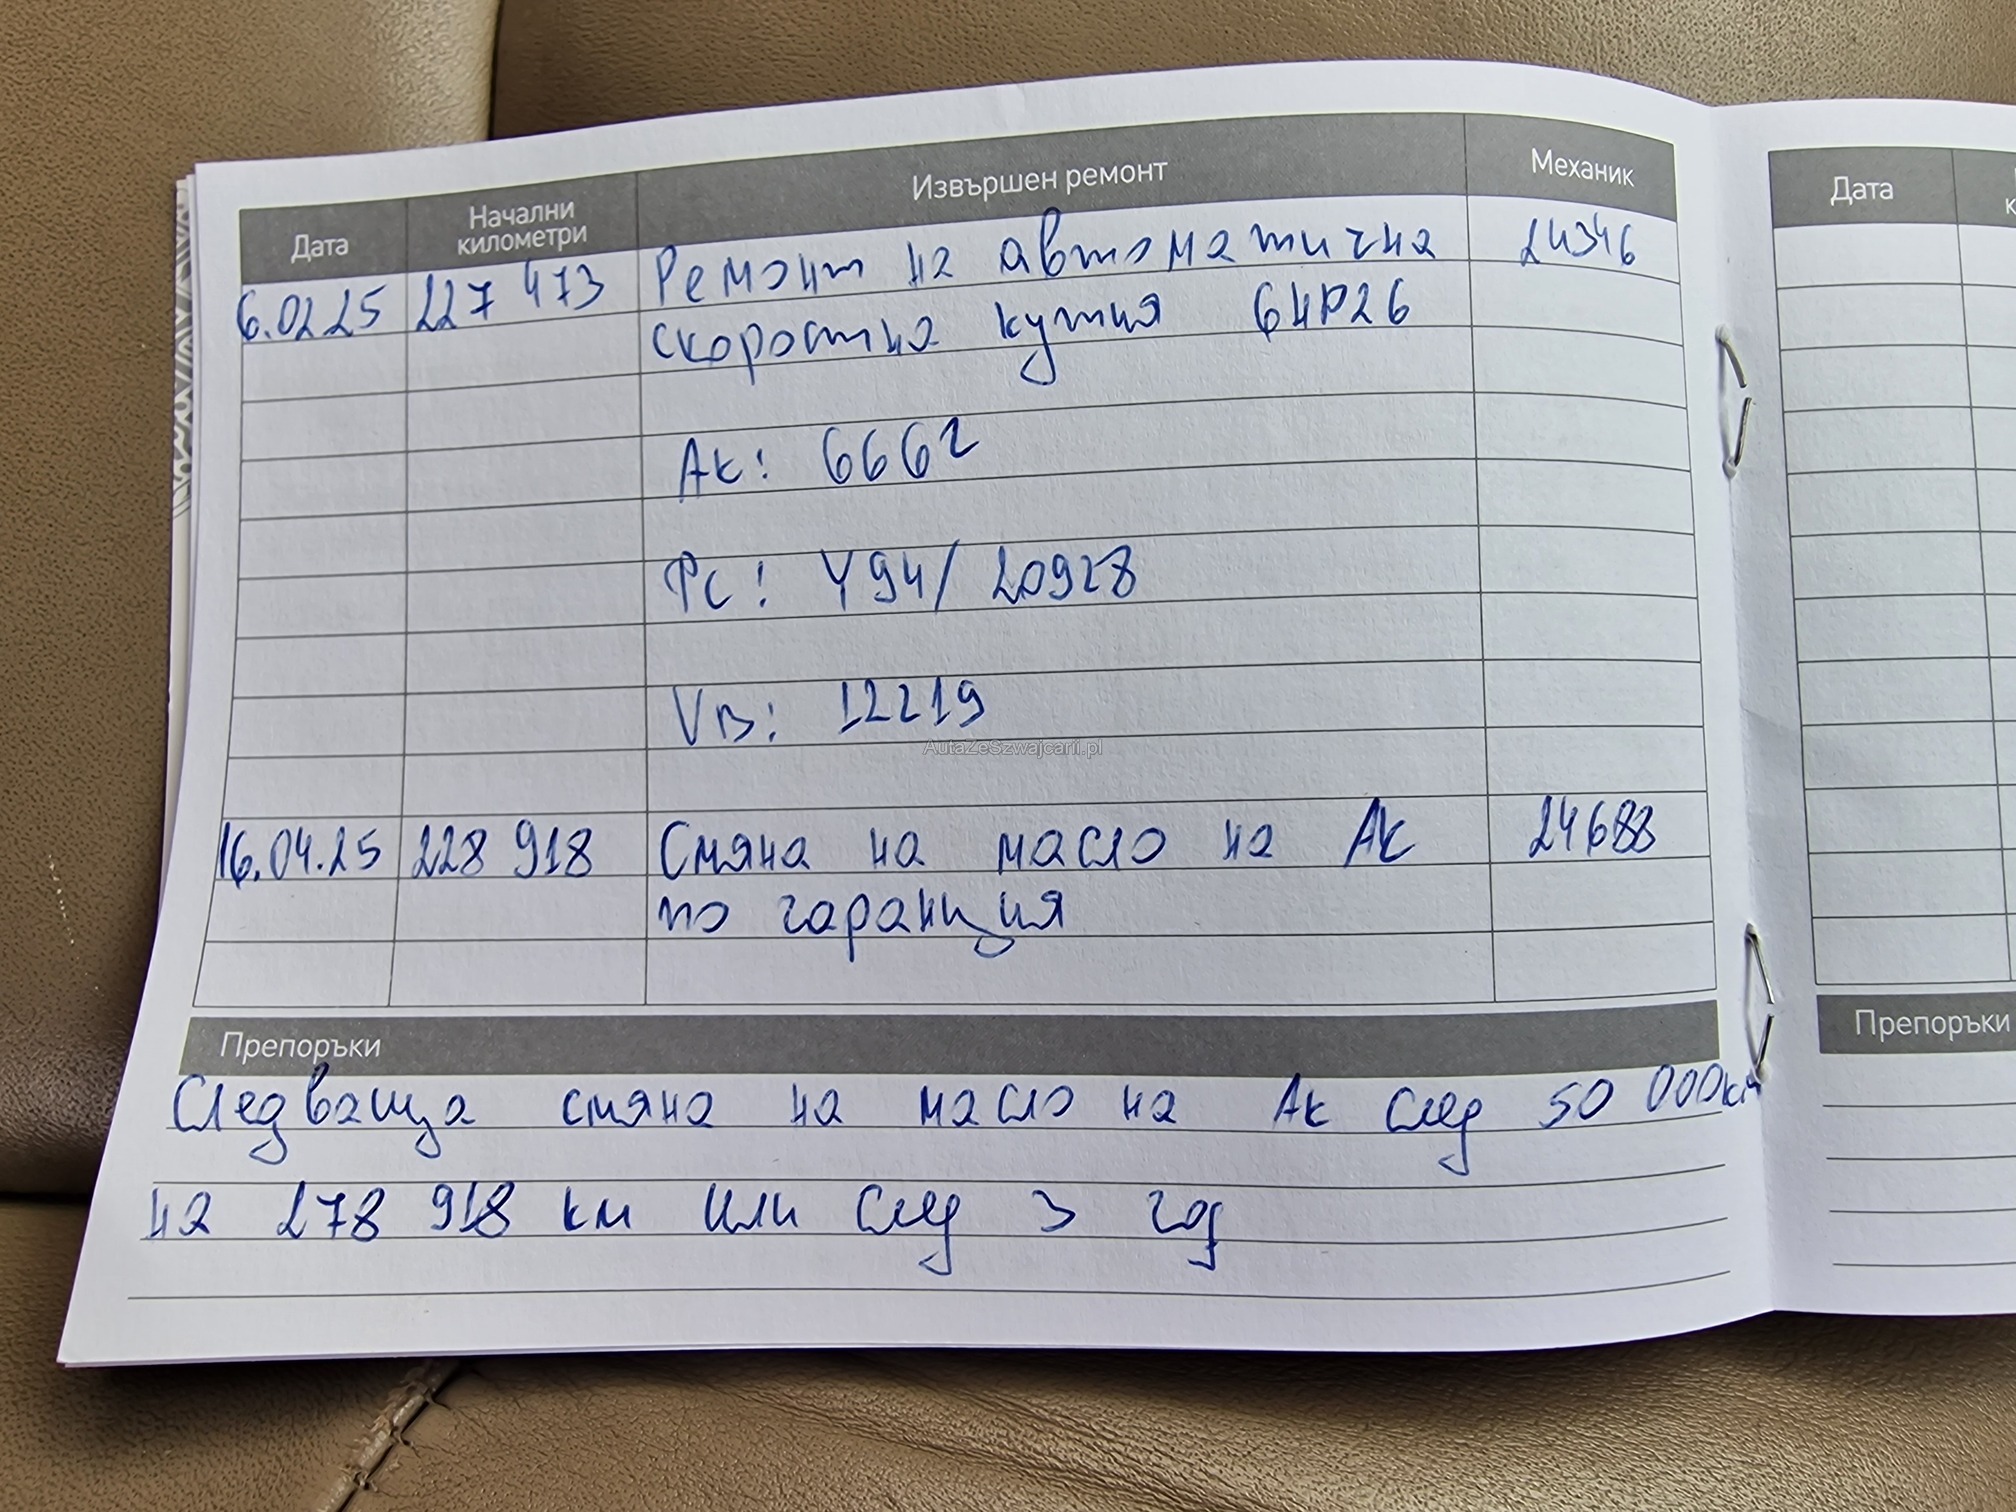 Дата Начални километри Извършен ремонт Механик
6.02.25 227 473 Ремонт на автоматична 24346
скоростна кутия 6HP26
Ак: 6662
РС: Y94/ 20928
VB: 12219
16.04.25 228 918 Смяна на масло на Ак 24688
по гаранция
Препоръки
Следваща смяна на масло на Ак след 50 000км
на 278 918 км или след 3 год
AutaZeSzwajcarii.pl
Дата
Препоръки